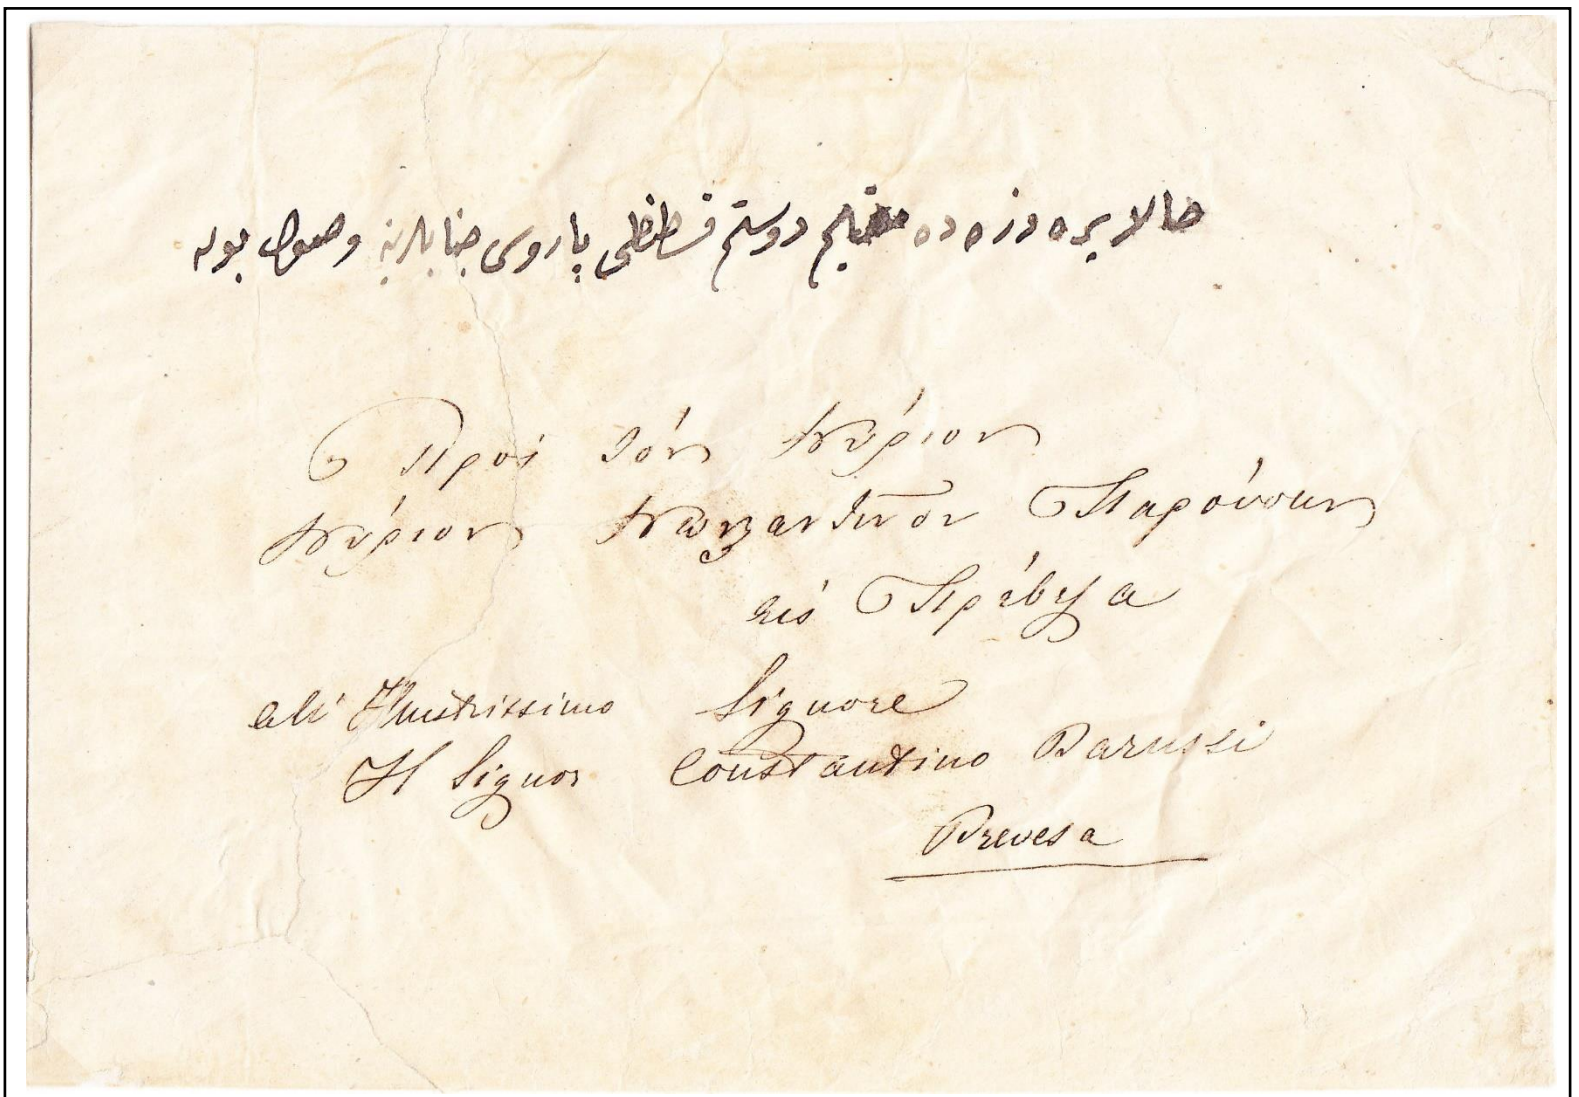 حالا پره وزه ده مقيم دوستم قسطنطى پاروسى جنابلرينه وصول بوله
Πρός τόν Κύριον
Κύριον Κωνσταντῖνον Παρούσην
εἰς Πρέβεζα
all' Illustrissimo Signore
Il Signor Constantino Parussi
Prevesa